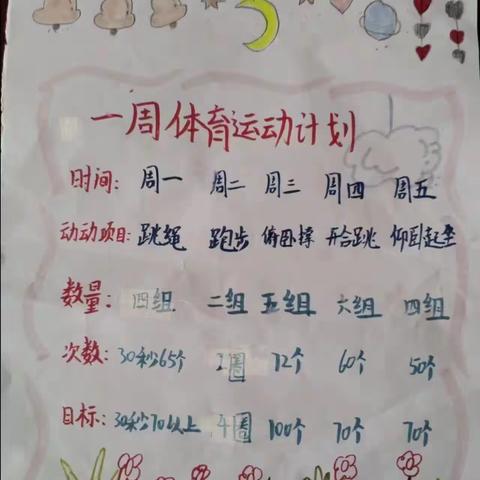 一周体育运动计划
时间: 周一 周二 周三 周四 周五
动动项目: 跳绳 跑步 俯卧撑 开合跳 仰卧起坐
数量: 四组 二组 五组 六组 四组
次数: 30秒65个 2圈 72个 60个 50个
目标: 30秒70以上 4圈 100个 70个 70个